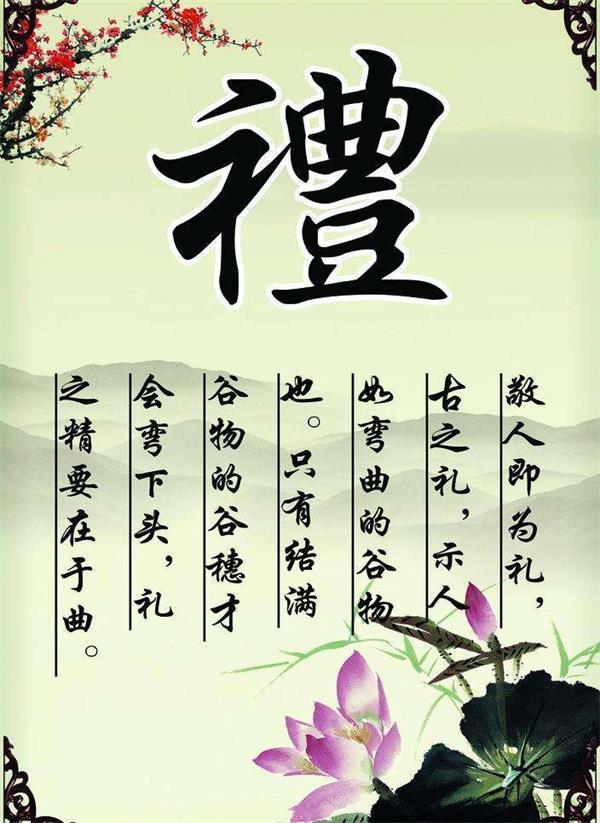 禮
敬人即为礼，
古之礼，示人
如弯曲的谷物
也。只有结满
谷物的谷穗才
会弯下头，礼
之精要在于曲。